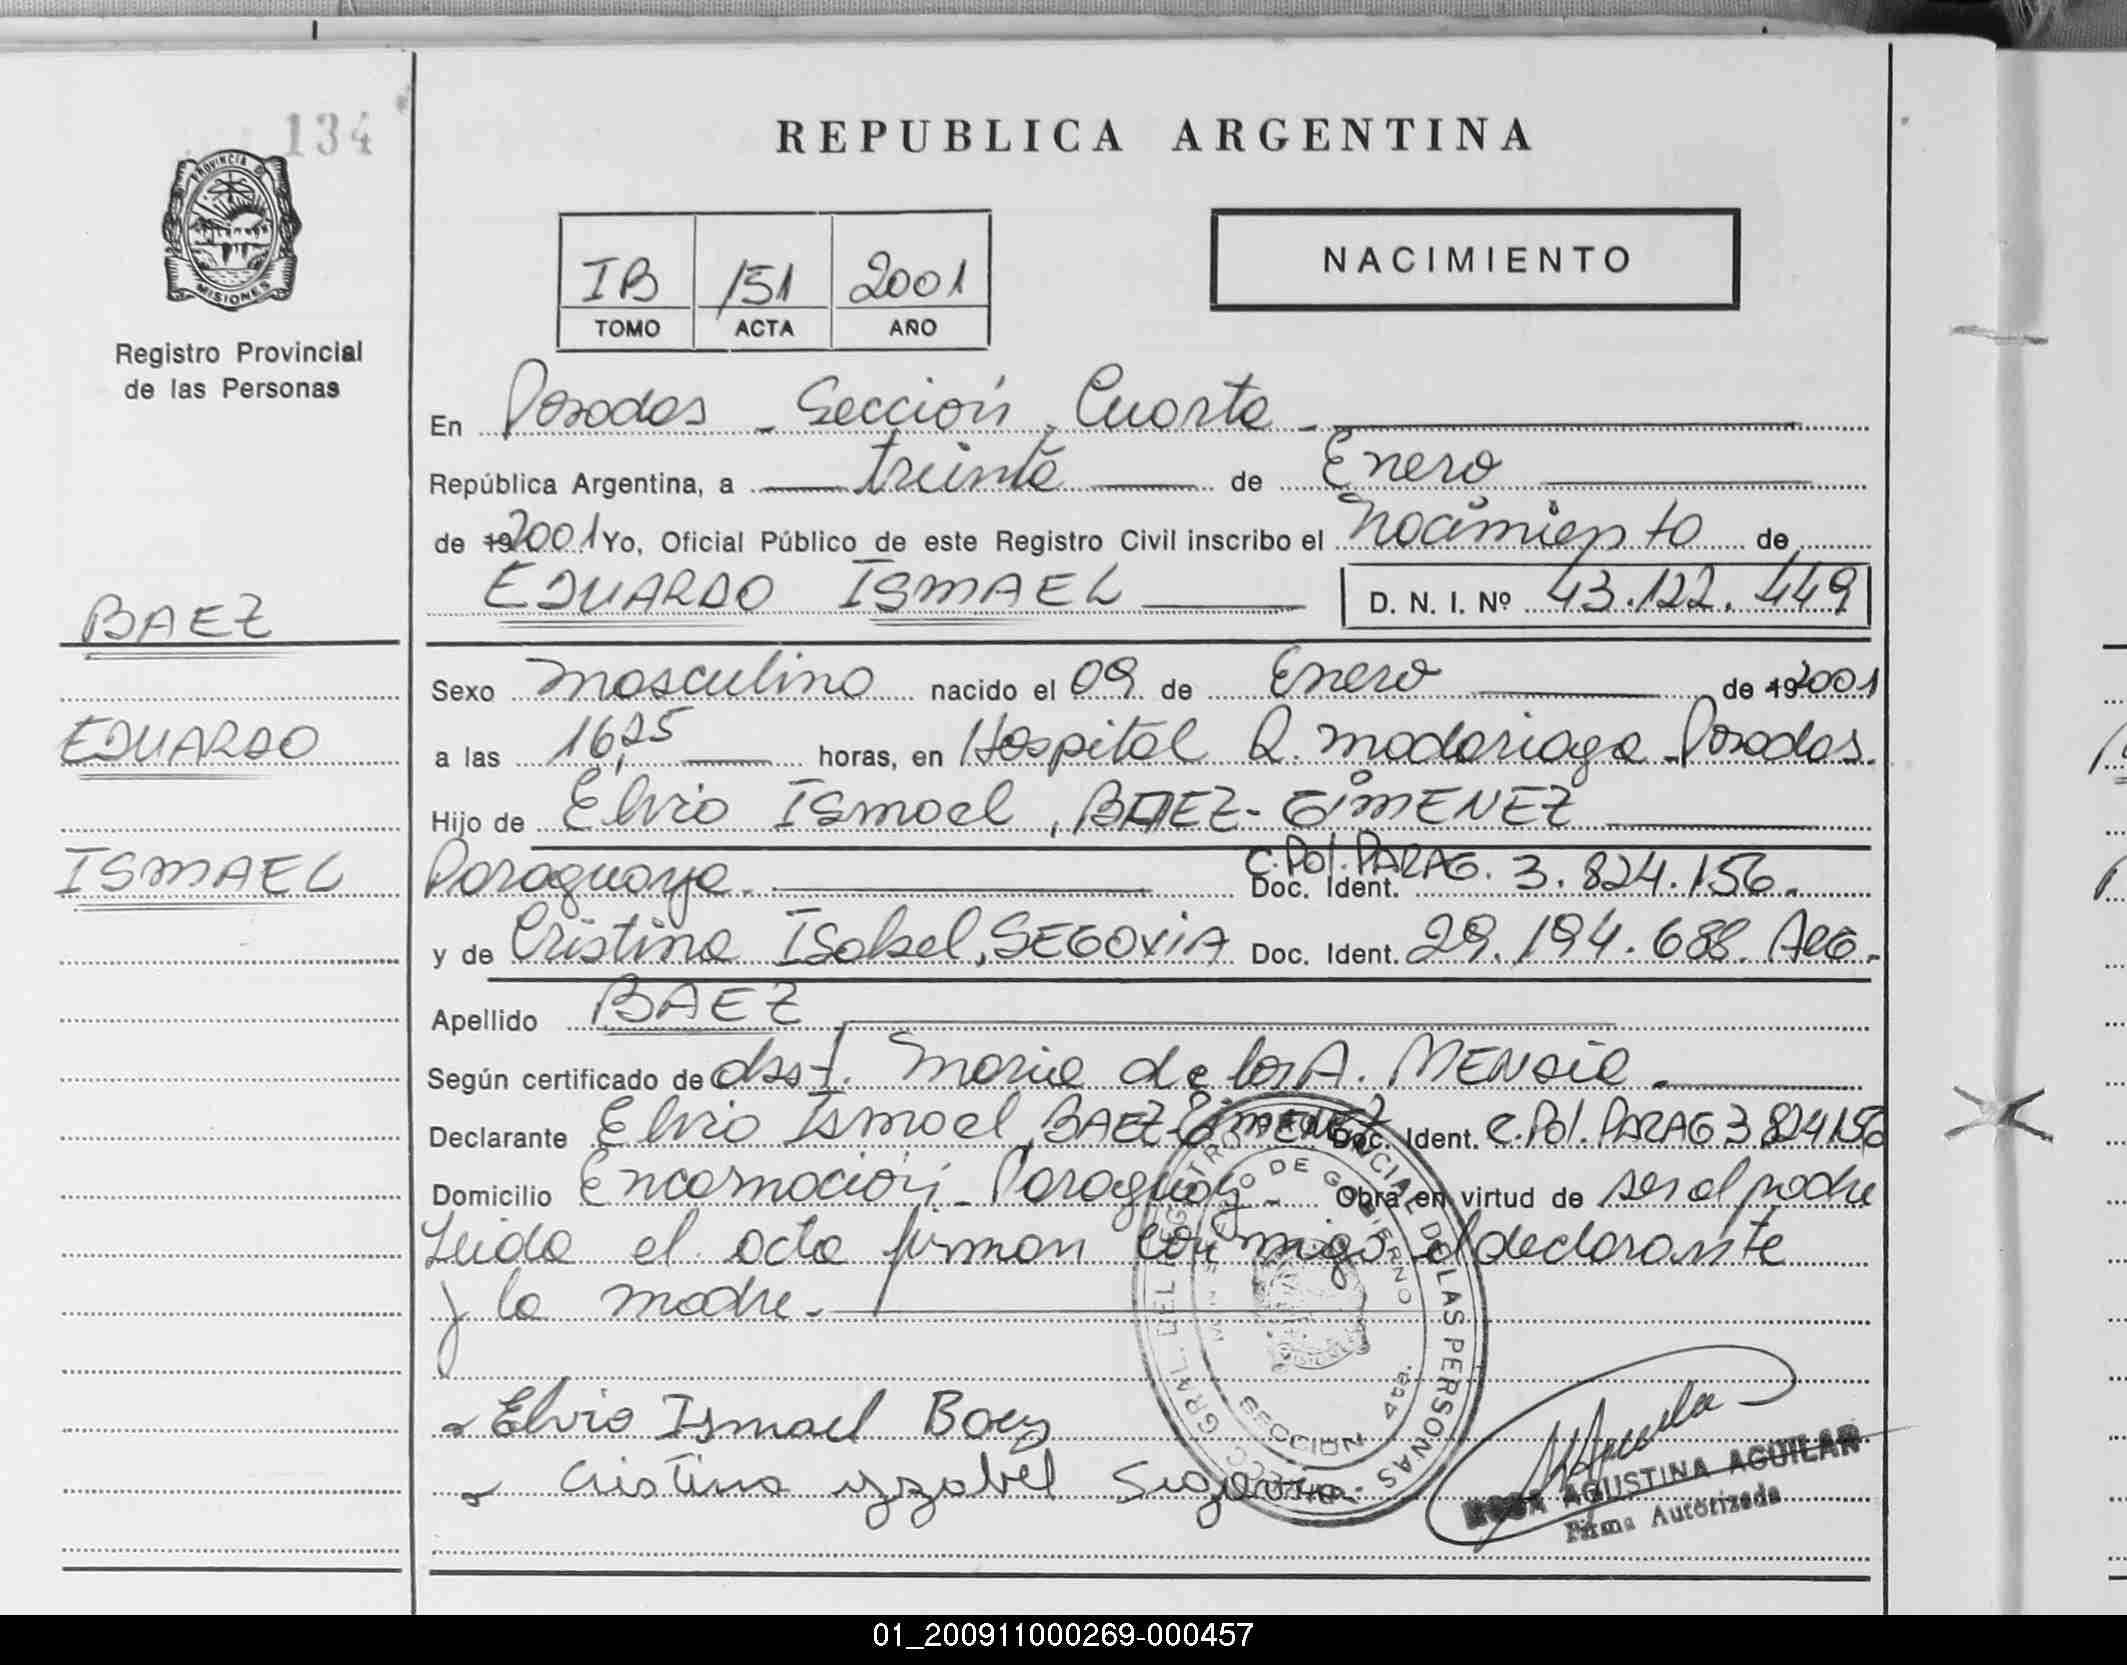 134
PROVINCIA DE
MISIONES
Registro Provincial
de las Personas
BAEZ
EDUARDO
ISMAEL
REPUBLICA ARGENTINA
IB 151 2001
TOMO ACTA AÑO
NACIMIENTO
En Posadas - Sección Cuarta -
República Argentina, a treinta de Enero
de 19 2001 Yo, Oficial Público de este Registro Civil inscribo el Nacimiento de
EDUARDO ISMAEL D. N. I. Nº 43.122.449
Sexo masculino nacido el 09 de Enero de 19 2001
a las 16,25 horas, en Hospital R. Madariaga - Posadas.
Hijo de Elvio Ismael, BAEZ - GIMENEZ
Paraguaya. Doc. Ident. C. Pol. PARAG. 3.824.156.
y de Cristina Isabel, SEGOVIA Doc. Ident. 29.194.688. ARG.
Apellido BAEZ
Según certificado de obst. Maria de los A.
Declarante Elvio Ismael, BAEZ - GIMENEZ Doc. Ident. C. Pol. PARAG 3 824 156
Domicilio Encarnación - Paraguay - Obra en virtud de ser el padre
Leida el acta firman conmigo el declarante
y la madre.
Elvio Ismael Baez
Cristina yzabel Segovia
DIRECC. GRAL. DEL REGISTRO PROVINCIAL DE LAS PERSONAS
DE GOBIERNO
SECCION 4ta.
ROSA AGUSTINA AGUILAR
Firma Autorizada
01_200911000269-000457